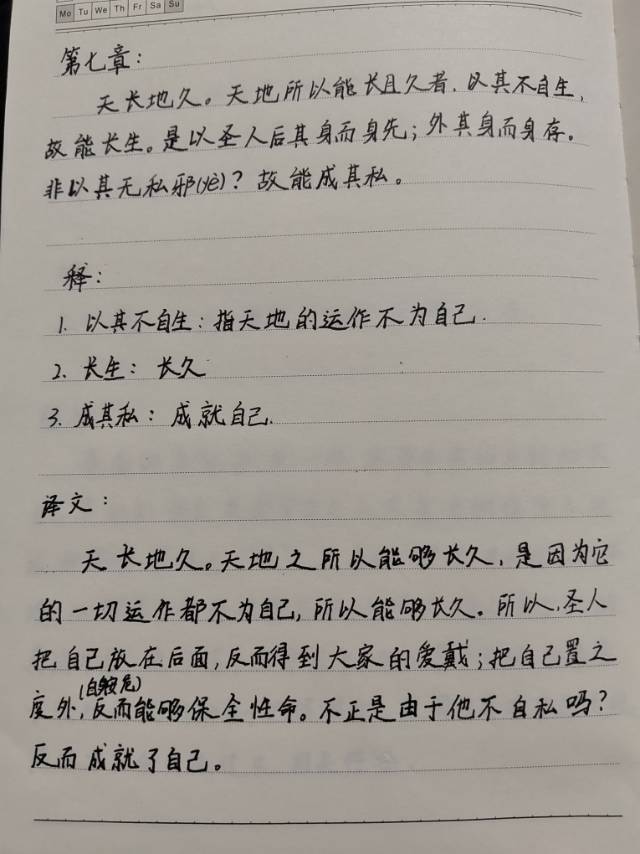 Mo Tu We Th Fr Sa Su
第七章：
天长地久。天地所以能长且久者，以其不自生，
故能长生。是以圣人后其身而身先；外其身而身存。
非以其无私邪(yé)？故能成其私。
释：
1. 以其不自生：指天地的运作不为自己.
2. 长生：长久
3. 成其私：成就自己.
译文：
天长地久。天地之所以能够长久，是因为它
的一切运作都不为自己，所以能够长久。所以，圣人
把自己放在后面，反而得到大家的爱戴；把自己置之
度外，反而能够保全性命。不正是由于他不自私吗？
反而成就了自己。